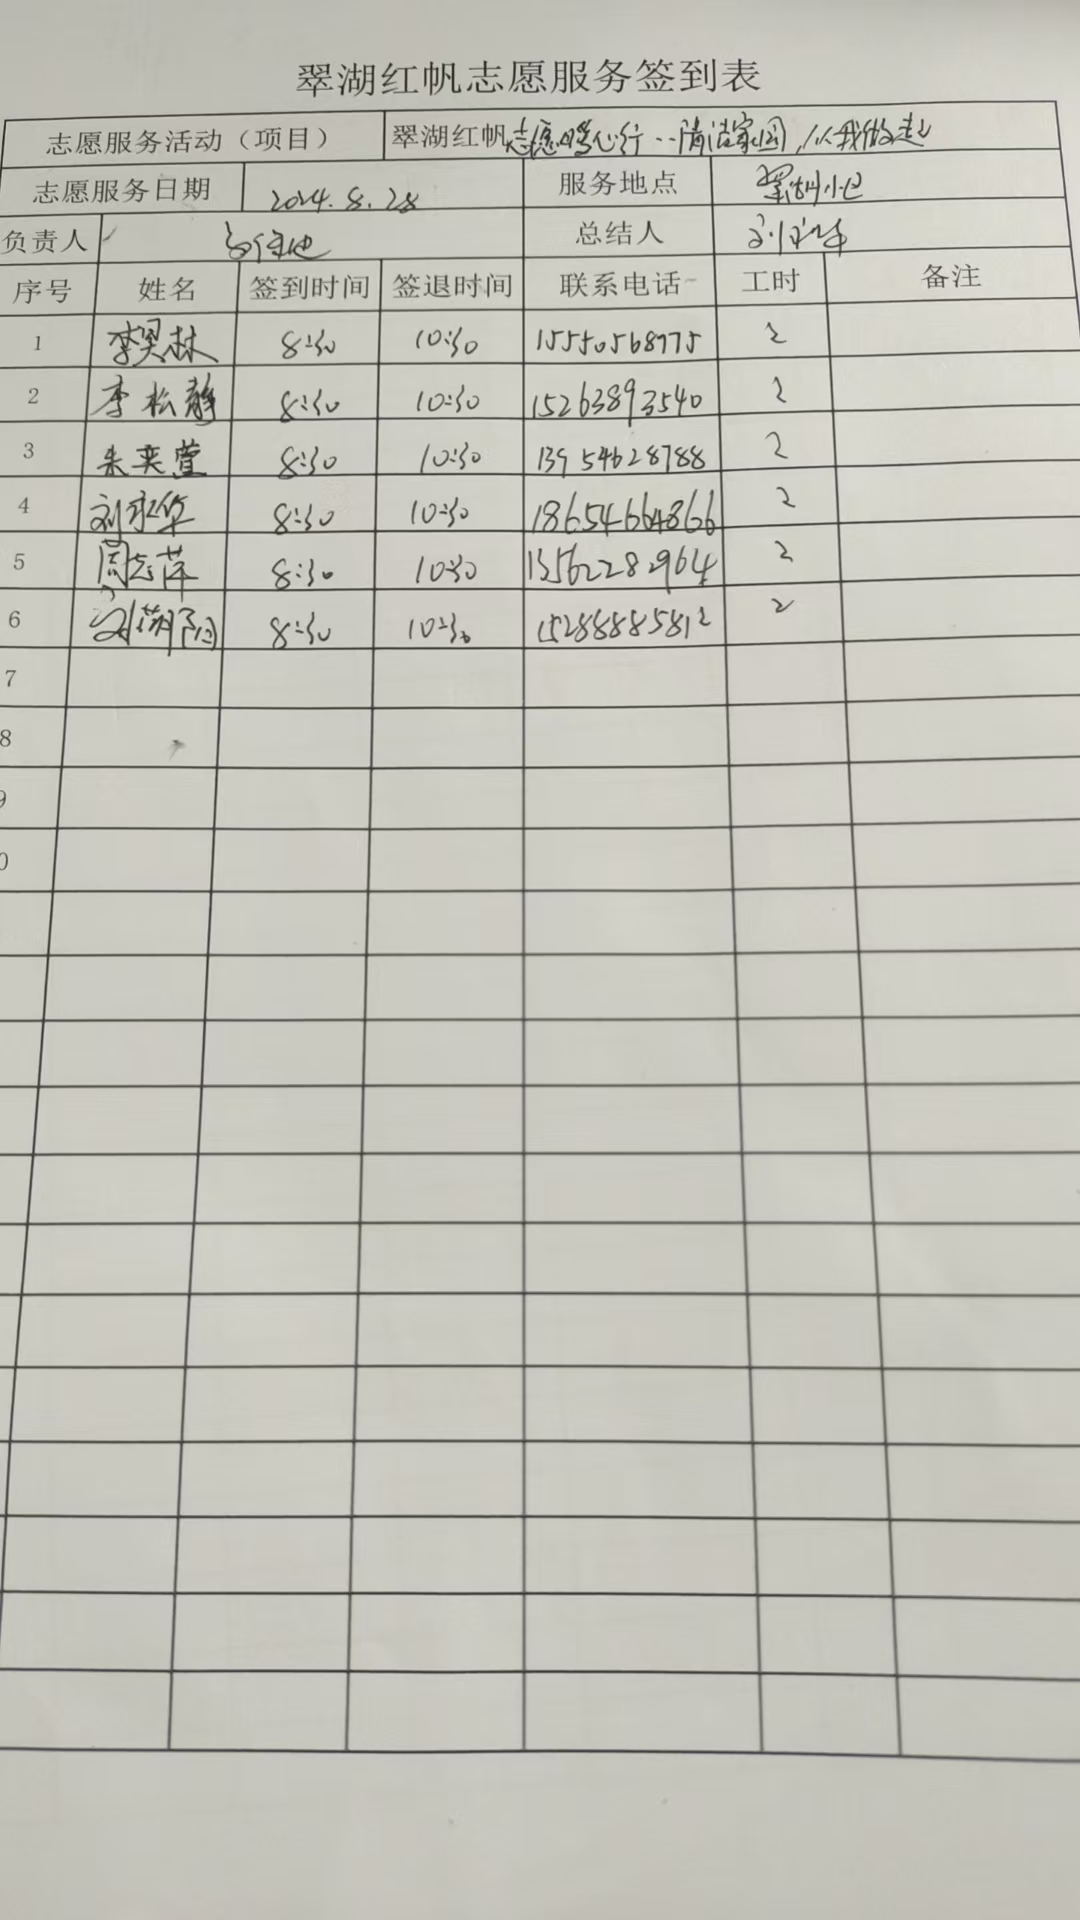 翠湖红帆志愿服务签到表
志愿服务活动（项目） 翠湖红帆志愿暖心行--清洁家园,从我做起
志愿服务日期 2024.8.28 服务地点 翠湖小区
负责人 总结人 刘永华
序号 姓名 签到时间 签退时间 联系电话 工时 备注
1 李昊林 8:30 10:30 15550568775 2
2 李松静 8:30 10:30 15263893540 2
3 朱奕萱 8:30 10:30 13954628788 2
4 刘永华 8:30 10:30 18654664866 2
5 周志萍 8:30 10:30 13562282964 2
6 刘 8:30 10:30 15288885812 2
7
8
9
0